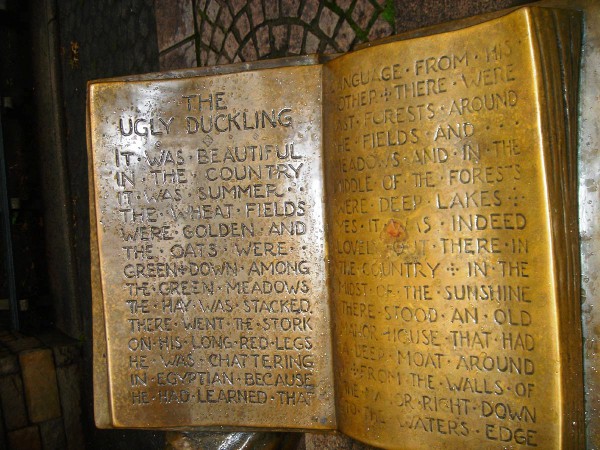 THE
UGLY DUCKLING
IT · WAS · BEAUTIFUL
IN · THE · COUNTRY
IT · WAS · SUMMER · ·
THE · WHEAT · FIELDS
WERE · GOLDEN · AND
THE · OATS · WERE · ·
GREEN + DOWN · AMONG
THE · GREEN · MEADOWS
THE · HAY · WAS · STACKED.
THERE · WENT · THE · STORK
ON · HIS · LONG · RED · LEGS
HE · WAS · CHATTERING
IN · EGYPTIAN · BECAUSE
HE · HAD · LEARNED · THAT
LANGUAGE · FROM · HIS ·
MOTHER + THERE · WERE
VAST · FORESTS · AROUND
THE · FIELDS · AND · · ·
MEADOWS · AND · IN · THE
MIDDLE · OF · THE · FORESTS
WERE · DEEP · LAKES · ·
YES · IT · WAS · INDEED
LOVELY · OUT · THERE · IN
THE · COUNTRY + IN · THE
MIDST · OF · THE · SUNSHINE
THERE · STOOD · AN · OLD
MANOR · HOUSE · THAT · HAD
A · DEEP · MOAT · AROUND
+ FROM · THE · WALLS · OF
THE · MANOR · RIGHT · DOWN
TO · THE · WATERS · EDGE